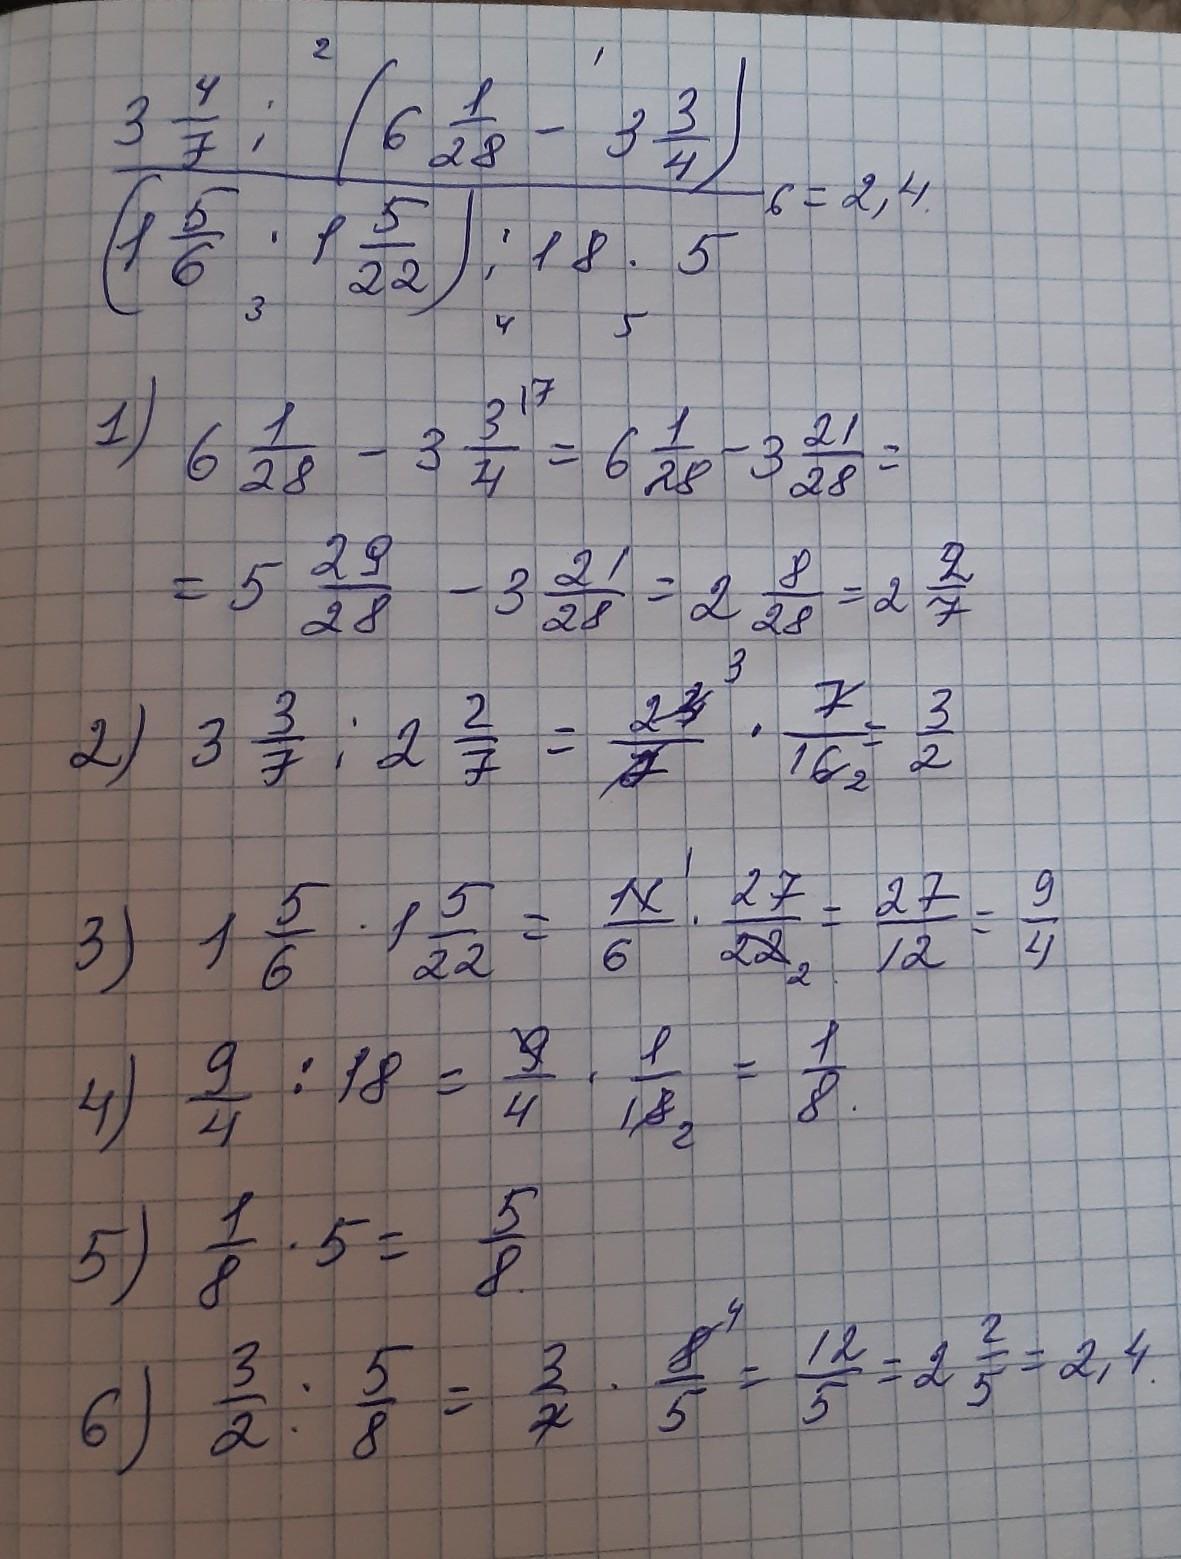 2 1
3 4/7 : (6 1/28 - 3 3/4)
6 = 2,4.
(1 5/6 · 1 5/22) : 18 · 5
3 4 5
1) 6 1/28 - 3 3/4 17 = 6 1/28 - 3 21/28 =
= 5 29/28 - 3 21/28 = 2 8/28 = 2 2/7
2) 3 3/7 : 2 2/7 = 24/7 3 · 7/16 2 = 3/2
3) 1 5/6 · 1 5/22 = 11/6 1 · 27/22 2 = 27/12 = 9/4
4) 9/4 : 18 = 9/4 · 1/18 2 = 1/8.
5) 1/8 · 5 = 5/8.
6) 3/2 : 5/8 = 3/2 · 8/5 4 = 12/5 = 2 2/5 = 2,4.